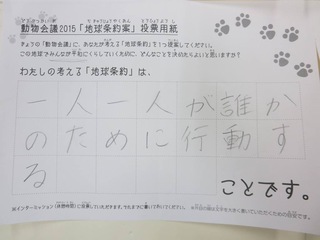 動物会議2015「地球条約案」投票用紙
きょうの「動物会議」に、あなたが考える「地球条約」を1つ提案してください。
この地球でみんなが平和にくらしていくために、どんなことを決めたらよいと思いますか?
わたしの考える「地球条約」は、
一人一人が誰か
のために行動す
る
ことです。